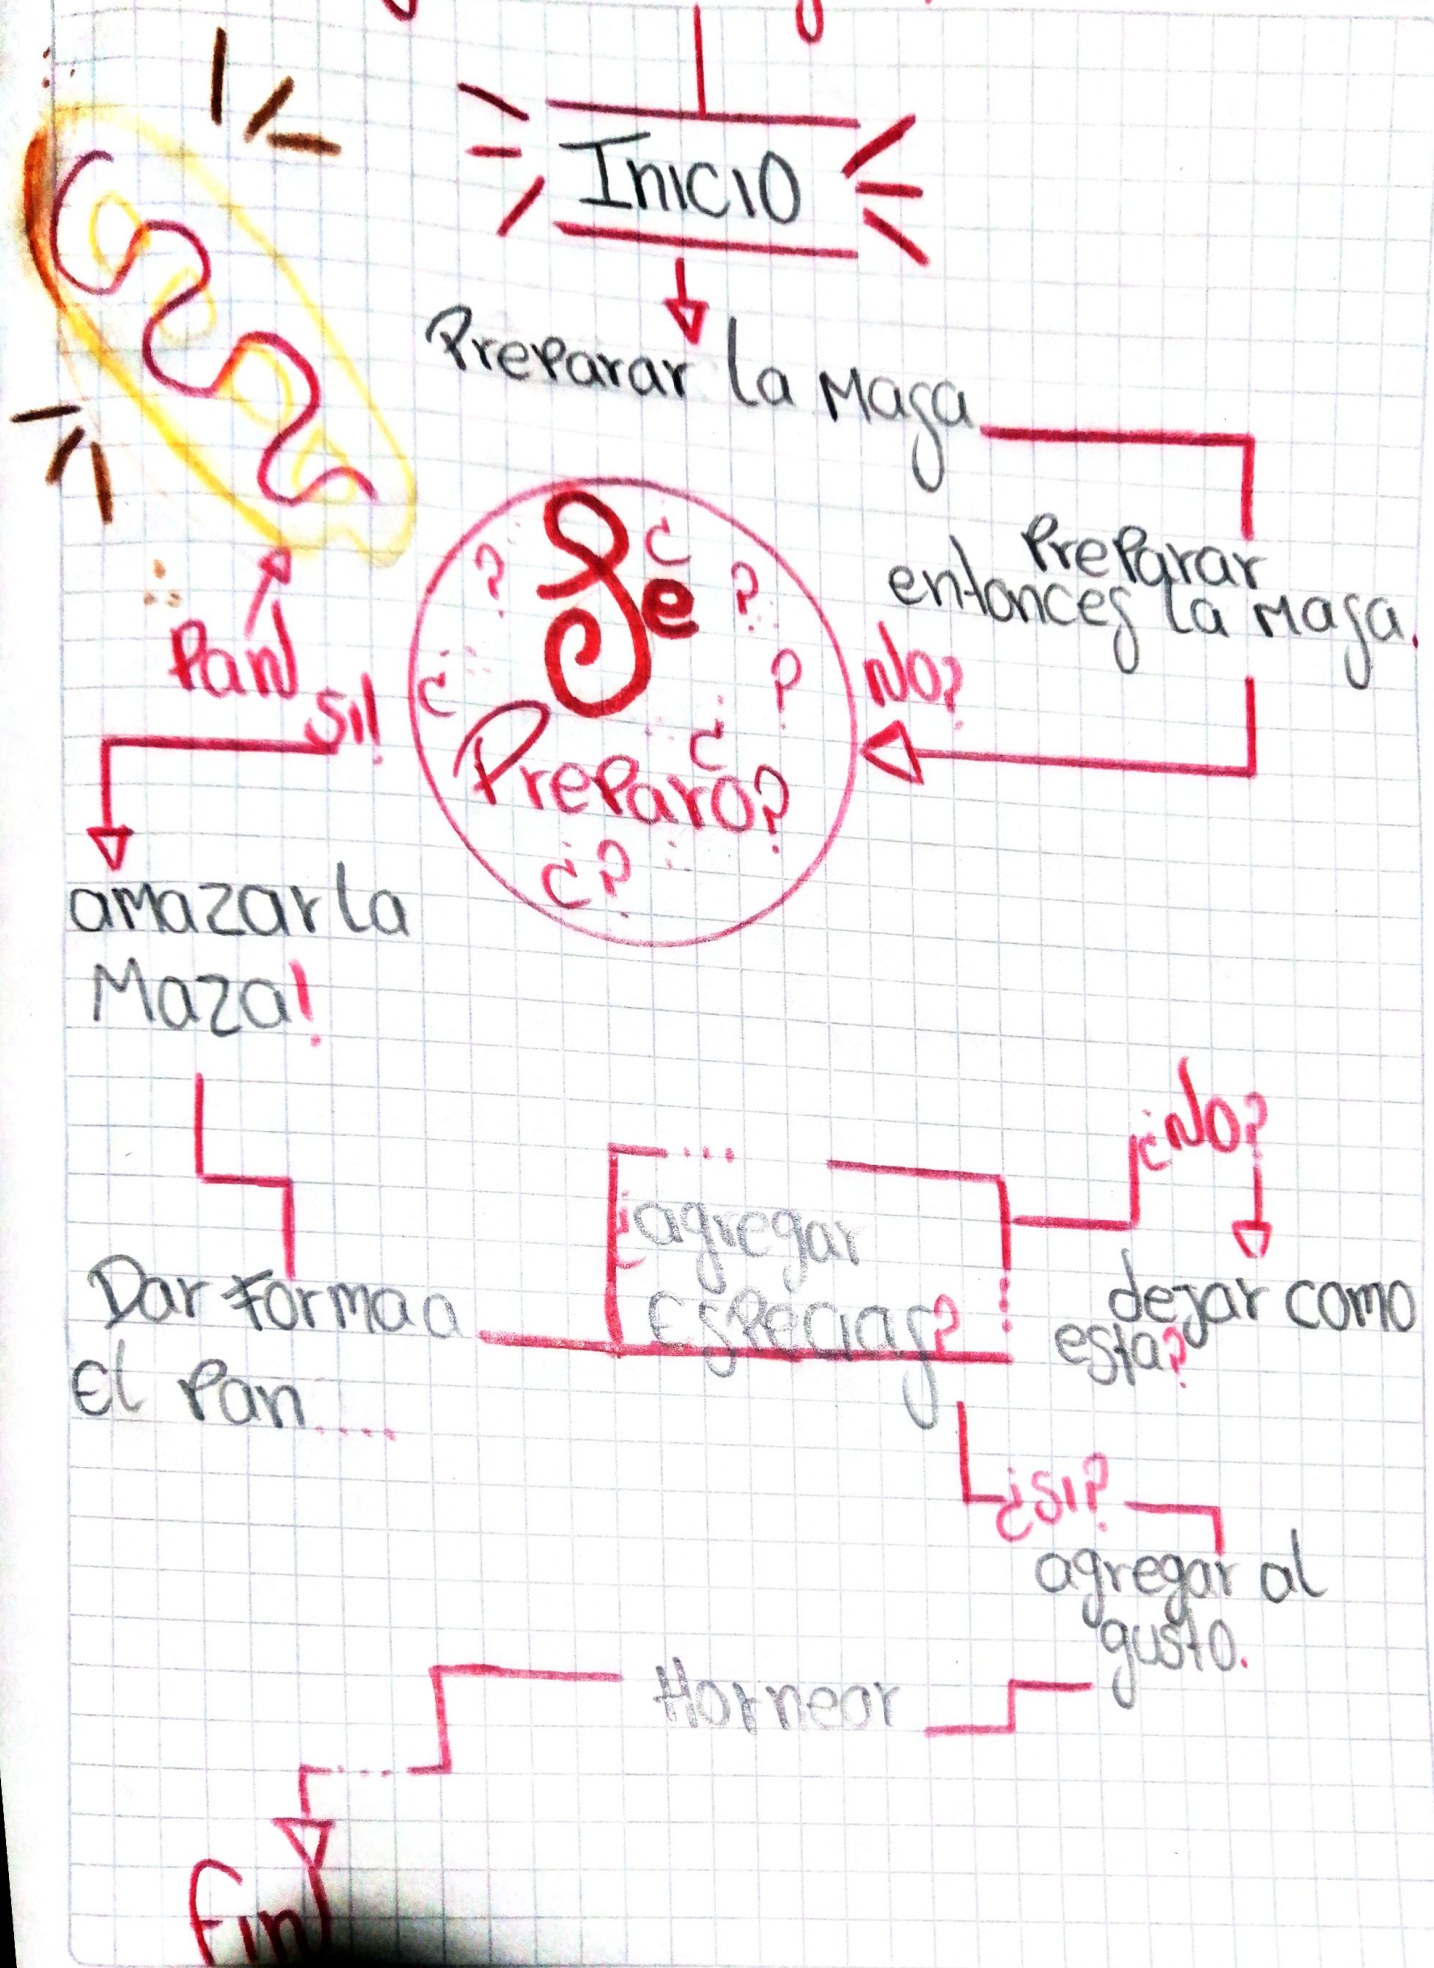 Inicio
Preparar la Masa
Preparar
entonces la Masa.
¿No?
Se
Preparo?
¿?
Pan
Si!
amazar la
Maza!
Dar Forma a
El Pan....
¿agregar
Especias?
¿No?
dejar como
esta?
¿Si?
agregar al
gusto.
Hornear
Fin